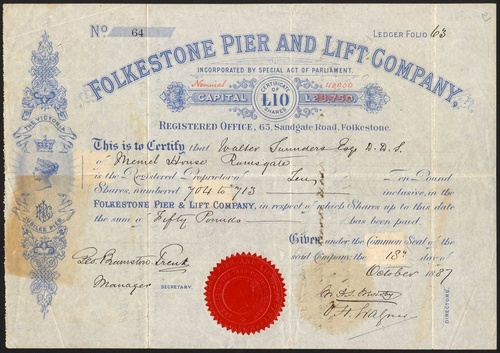 No 64
LEDGER FOLIO 63
FOLKESTONE PIER AND LIFT COMPANY,
INCORPORATED BY SPECIAL ACT OF PARLIAMENT.
Nominal
CAPITAL
CERTIFICATE OF
£10
SHARES
REGISTERED OFFICE, 65, Sandgate Road, Folkestone.
THE VICTORIA
JUBILEE PIER
This is to Certify that Walter Saunders Esq. D.D.S.
of Memel House Ramsgate
is the Registered Proprietor of Ten Ten Pound
Shares, numbered 704 to 713 inclusive, in the
FOLKESTONE PIER & LIFT COMPANY, in respect of which Shares up to this date
the sum of Fifty Pounds has been paid.
Given under the Common Seal of the
said Company the 13th day of
October 1887
Manager
SECRETARY.
DIRECTORS.